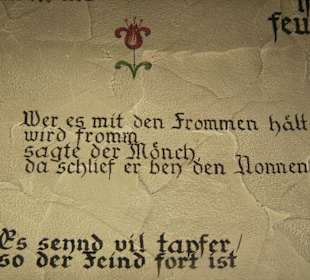 feu
Wer es mit den Frommen hält
wird fromm
sagte der Mönch,
da schlief er bey den Nonnen
Es seynd vil tapfer/
so der Feind fort ist